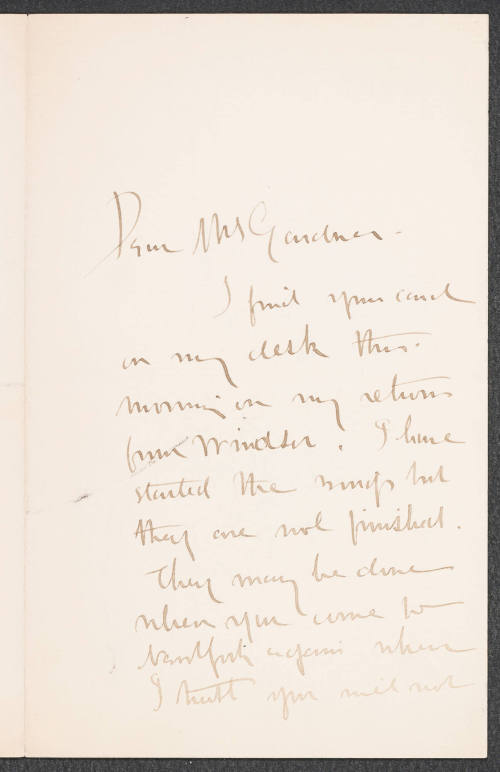 Dear Mrs Gardner.
I find your card
on my desk this
morning on my return
from Windsor. I have
started the wings but
they are not finished.
They may be done
when you come to
again when
I trust you will not